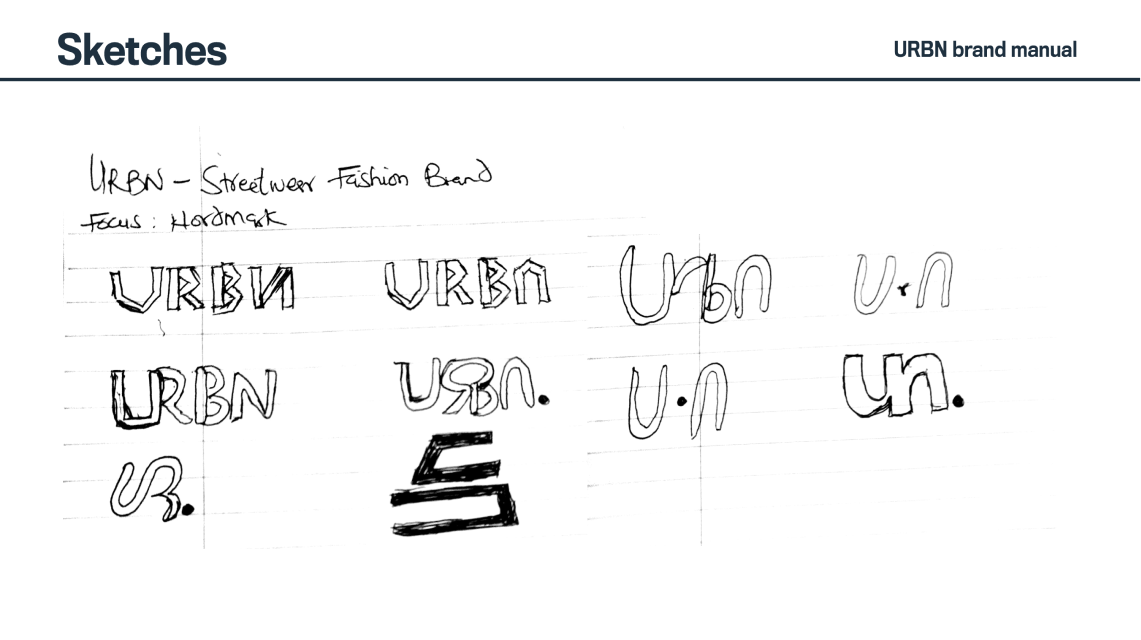 Sketches
URBN brand manual
URBN – Streetwear Fashion Brand
Focus : Wordmark
URBN
URBN
Urbn
U·n
URBN
URBn.
U·n
un.
UR.